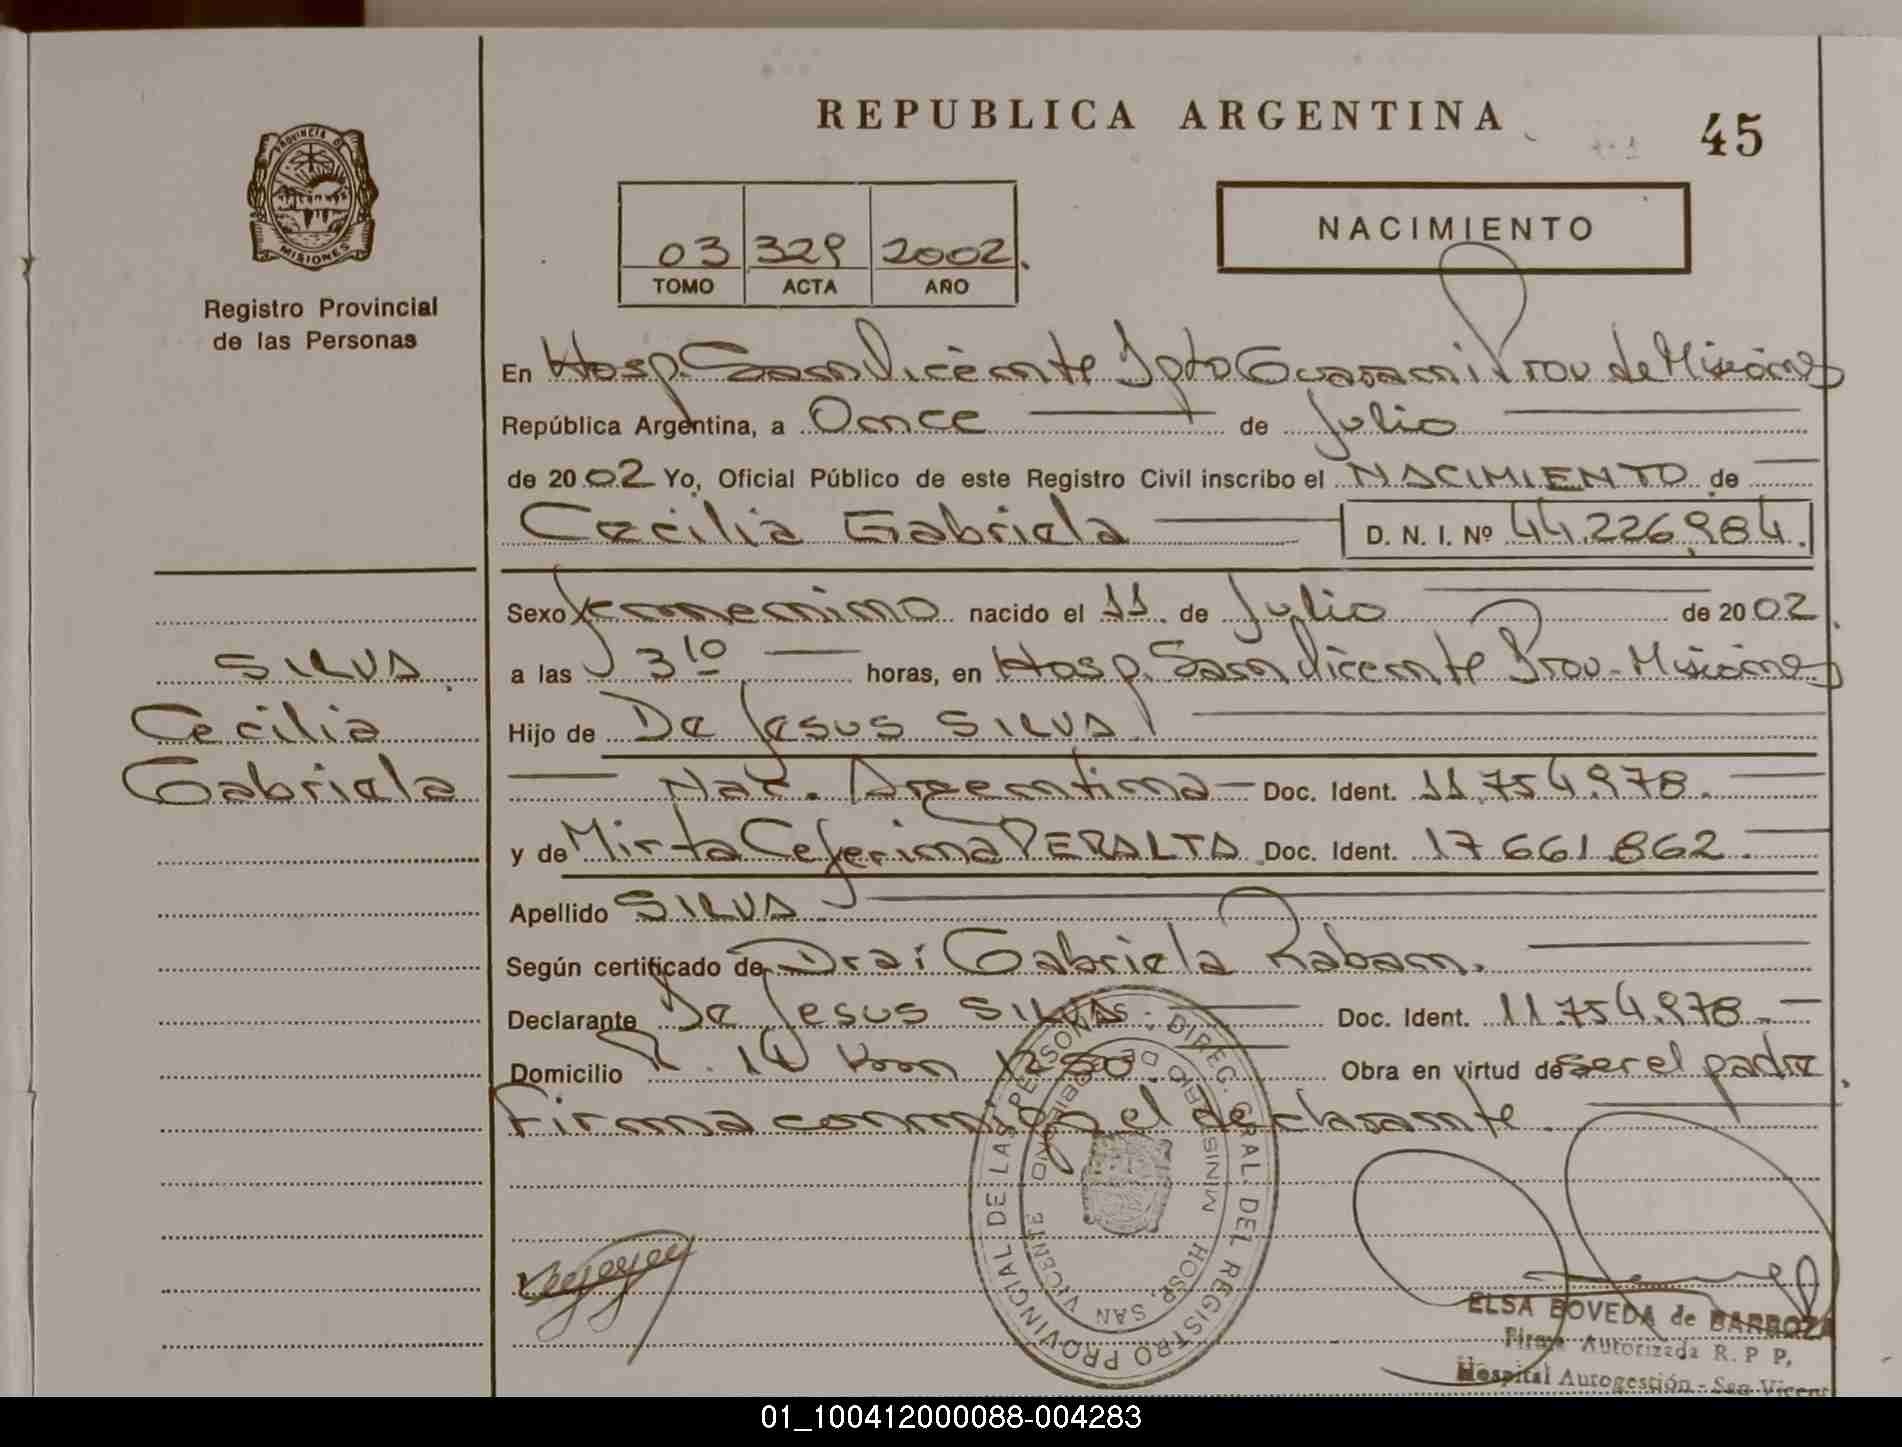 REPUBLICA ARGENTINA
45
PROVINCIA DE MISIONES
Registro Provincial
de las Personas
03 329 2002
TOMO ACTA AÑO
NACIMIENTO
En Hosp. San Vicente Dpto Guarani Prov de Misiones
República Argentina, a Once de Julio
de 2002 Yo, Oficial Público de este Registro Civil inscribo el NACIMIENTO de
Cecilia Gabriela D. N. I. Nº 44.226.984.
Sexo femenino nacido el 11 de Julio de 2002
a las 3 10 horas, en Hosp. San Vicente Prov. Misiones
Hijo de De Jesus SILVA
Nac. Argentina Doc. Ident. 11.754.978.
y de Mirta Ceferina PERALTA Doc. Ident. 17.661.862.
Apellido SILVA
Según certificado de Dra: Gabriela Raban.
Declarante De Jesus SILVA Doc. Ident. 11.754.978
Domicilio R. 14 Km 1280 Obra en virtud de ser el padre
Firma conmigo el declarante.
SILVA
Cecilia
Gabriela
DIREC. GRAL. DEL REGISTRO PROVINCIAL DE LAS PERSONAS
MINISTERIO DE GOBIERNO
HOSP. SAN VICENTE
ELSA BOVEDA de BARBOZA
Firma Autorizada R. P P.
Hospital Autogestión - San Vicent
01_100412000088-004283